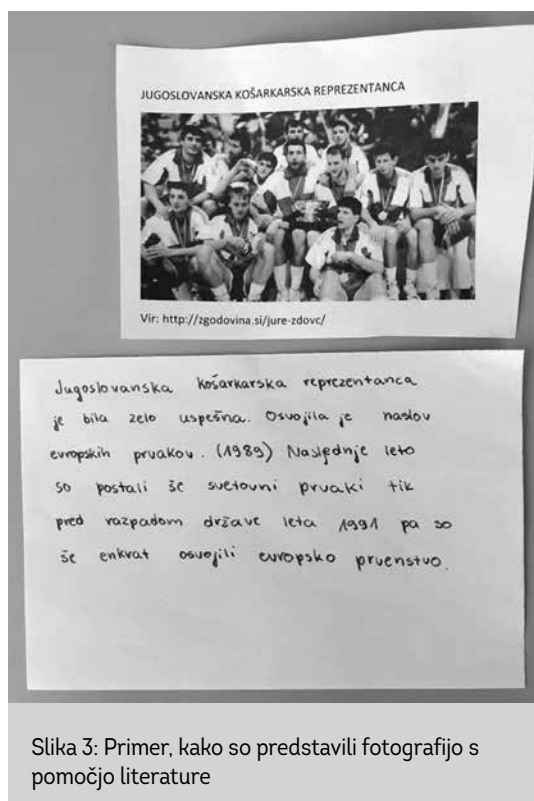 JUGOSLOVANSKA KOŠARKARSKA REPREZENTANCA
Vir: http://zgodovina.si/jure-zdovc/
Jugoslovanska košarkarska reprezentanca
je bila zelo uspešna. Osvojila je naslov
evropskih prvakov. (1989) Naslednje leto
so postali še svetovni prvaki tik
pred razpadom države leta 1991 pa so
še enkrat osvojili evropsko prvenstvo.
Slika 3: Primer, kako so predstavili fotografijo s
pomočjo literature